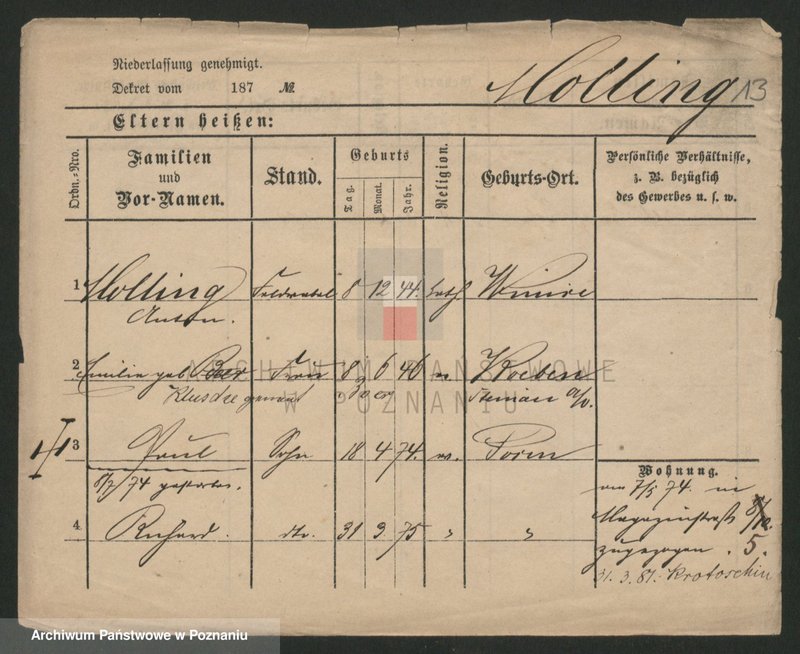 Niederlassung genehmigt.
Dekret vom 187 №
Molling 13
Eltern heißen:
Ordn.-Nro.
Familien und Vor-Namen.
Stand.
Geburts
Tag. Monat. Jahr.
Religion.
Geburts-Ort.
Persönliche Verhältnisse, z. B. bezüglich des Gewerbes u. s. w.
1 Molling 8 12 44. kath
Anton.
2 Emilie geb. Frau 8 6 46 Koeben
Steinau a/o.
3 Paul Sohn 18 4 74. Posen
8/7 74 gestorben.
4 Richard. dto. 31 3 75 " "
Wohnung.
am 7/5 74. in
Magazinstraße
zugezogen. 5.
31.3.81. Krotoschin
ARCHIWUM PAŃSTWOWE
W POZNANIU
Archiwum Państwowe w Poznaniu